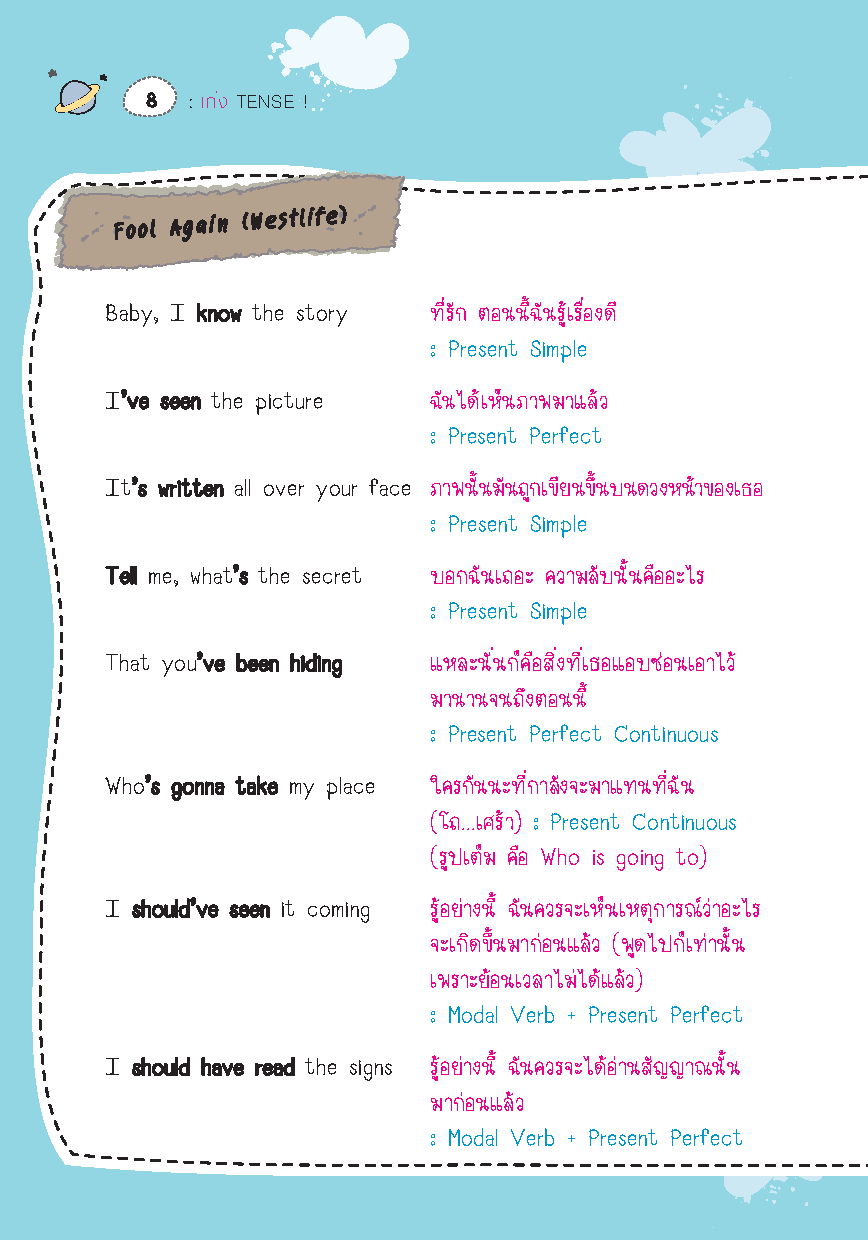 8 : เก่ง TENSE !
Fool Again (Westlife)
Baby, I know the story ที่รัก ตอนนี้ฉันรู้เรื่องดี
: Present Simple
I've seen the picture ฉันได้เห็นภาพมาแล้ว
: Present Perfect
It's written all over your face ภาพนั้นมันถูกเขียนขึ้นบนดวงหน้าของเธอ
: Present Simple
Tell me, what's the secret บอกฉันเถอะ ความลับนั้นคืออะไร
: Present Simple
That you've been hiding แหละนั่นก็คือสิ่งที่เธอแอบซ่อนเอาไว้
มานานจนถึงตอนนี้
: Present Perfect Continuous
Who's gonna take my place ใครกันนะที่กาลังจะมาแทนที่ฉัน
(โถ...เศร้า) : Present Continuous
(รูปเต็ม คือ Who is going to)
I should've seen it coming รู้อย่างนี้ ฉันควรจะเห็นเหตุการณ์ว่าอะไร
จะเกิดขึ้นมาก่อนแล้ว (พูดไปก็เท่านั้น
เพราะย้อนเวลาไม่ได้แล้ว)
: Modal Verb + Present Perfect
I should have read the signs รู้อย่างนี้ ฉันควรจะได้อ่านสัญญาณนั้น
มาก่อนแล้ว
: Modal Verb + Present Perfect